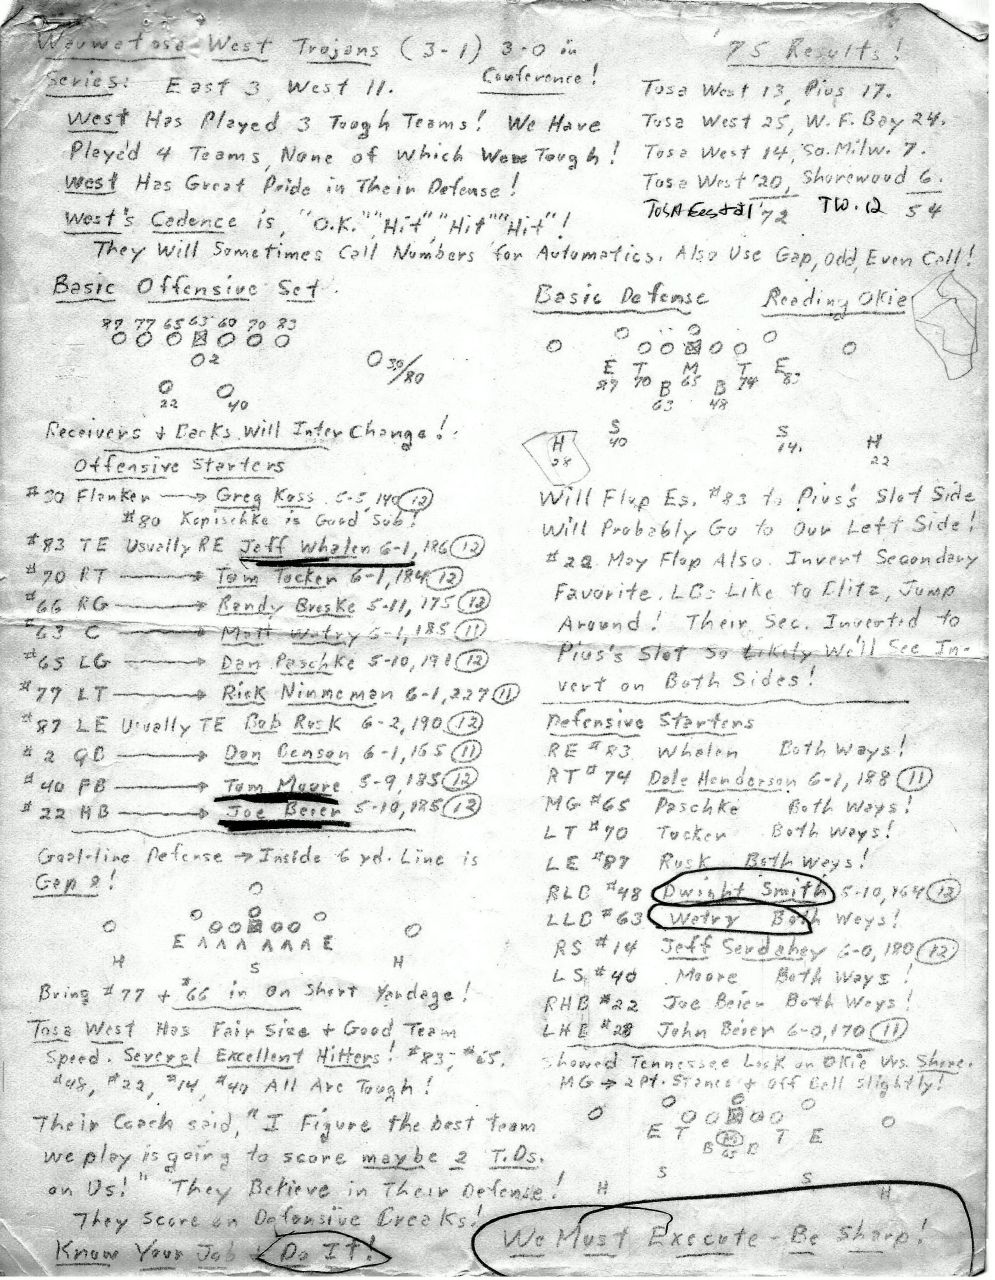 Wauwatosa West Trojans (3-1) 3-0 in Conference!
Series: East 3 West 11.
West Has Played 3 Tough Teams! We Have
Played 4 Teams, None of which Were Tough!
West Has Great Pride in Their Defense!
West's Cadence is, "O.K.", "Hit", "Hit" "Hit"!
'75 Results!
Tosa West 13, Pius 17.
Tosa West 25, W. F. Bay 24.
Tosa West 14, So. Milw. 7.
Tosa West 20, Shorewood 6.
'72 TW. 12 54
They Will Sometimes Call Numbers for Automatics. Also Use Gap, odd, Even Call!
Basic Offensive Set.
87 77 65 63 60 70 83
2
30/80
22 40
Receivers + Backs Will InterChange!
Offensive Starters
#30 Flanker → Greg Kass 5-5, 140 (12)
#80 Kopischke is Good Sub!
#83 TE Usually RE Jeff Whalen 6-1, 186 (12)
#70 RT → Tom Tucker 6-1, 184 (12)
#66 RG → Randy Breske 5-11, 175 (12)
#63 C → Matt Wetry 6-1, 185 (11)
#65 LG → Dan Paschke 5-10, 191 (12)
#77 LT → Rick Ninneman 6-1, 227 (11)
#87 LE Usually TE Bob Rusk 6-2, 190 (12)
#2 QB → Dan Benson 6-1, 165 (11)
#40 FB → Tom Moore 5-9, 185 (12)
#22 HB → Joe Beier 5-10, 185 (12)
Goal-line Defense → Inside 6 yd. Line is
Gap 8!
E A A A A A E
H S H
Bring #77 + #66 in on Short Yardage!
Tosa West Has Fair Size + Good Team
Speed. Several Excellent Hitters! #83, #65,
#48, #22, #14, #40 All Are Tough!
Their Coach said, "I Figure the best team
we play is going to score maybe 2 T.Ds.
on Us!" They Believe in Their Defense!
They Score on Defensive Breaks!
Know Your Job + Do It!
Basic Defense Reading Okie
E T M T E
87 70 B 65 B 74 83
63 48
H S S H
28 40 14 22
Will Flop Es. #83 to Pius's Slot Side
Will Probably Go to Our Left Side!
#22 May Flop Also. Invert Secondary
Favorite. LBs Like to Blitz, Jump
Around! Their Sec. Inverted to
Pius's Slot So Likely We'll See In-
vert on Both Sides!
Defensive Starters
RE #83 Whalen Both Ways!
RT #74 Dale Henderson 6-1, 188 (11)
MG #65 Paschke Both Ways!
LT #70 Tucker Both Ways!
LE #87 Rusk Both Ways!
RLB #48 Dwight Smith 5-10, 164 (12)
LLB #63 Wetry Both Ways!
RS #14 Jeff 6-0, 180 (12)
LS #40 Moore Both Ways!
RHB #22 Joe Beier Both Ways!
LHB #28 John Beier 6-0, 170 (11)
Showed Tennessee Look on Okie Vrs. Shore.
MG → 2 Pt. Stance + Off Ball slightly!
E T B MG B T E
65
S S
H H
We Must Execute - Be Sharp!